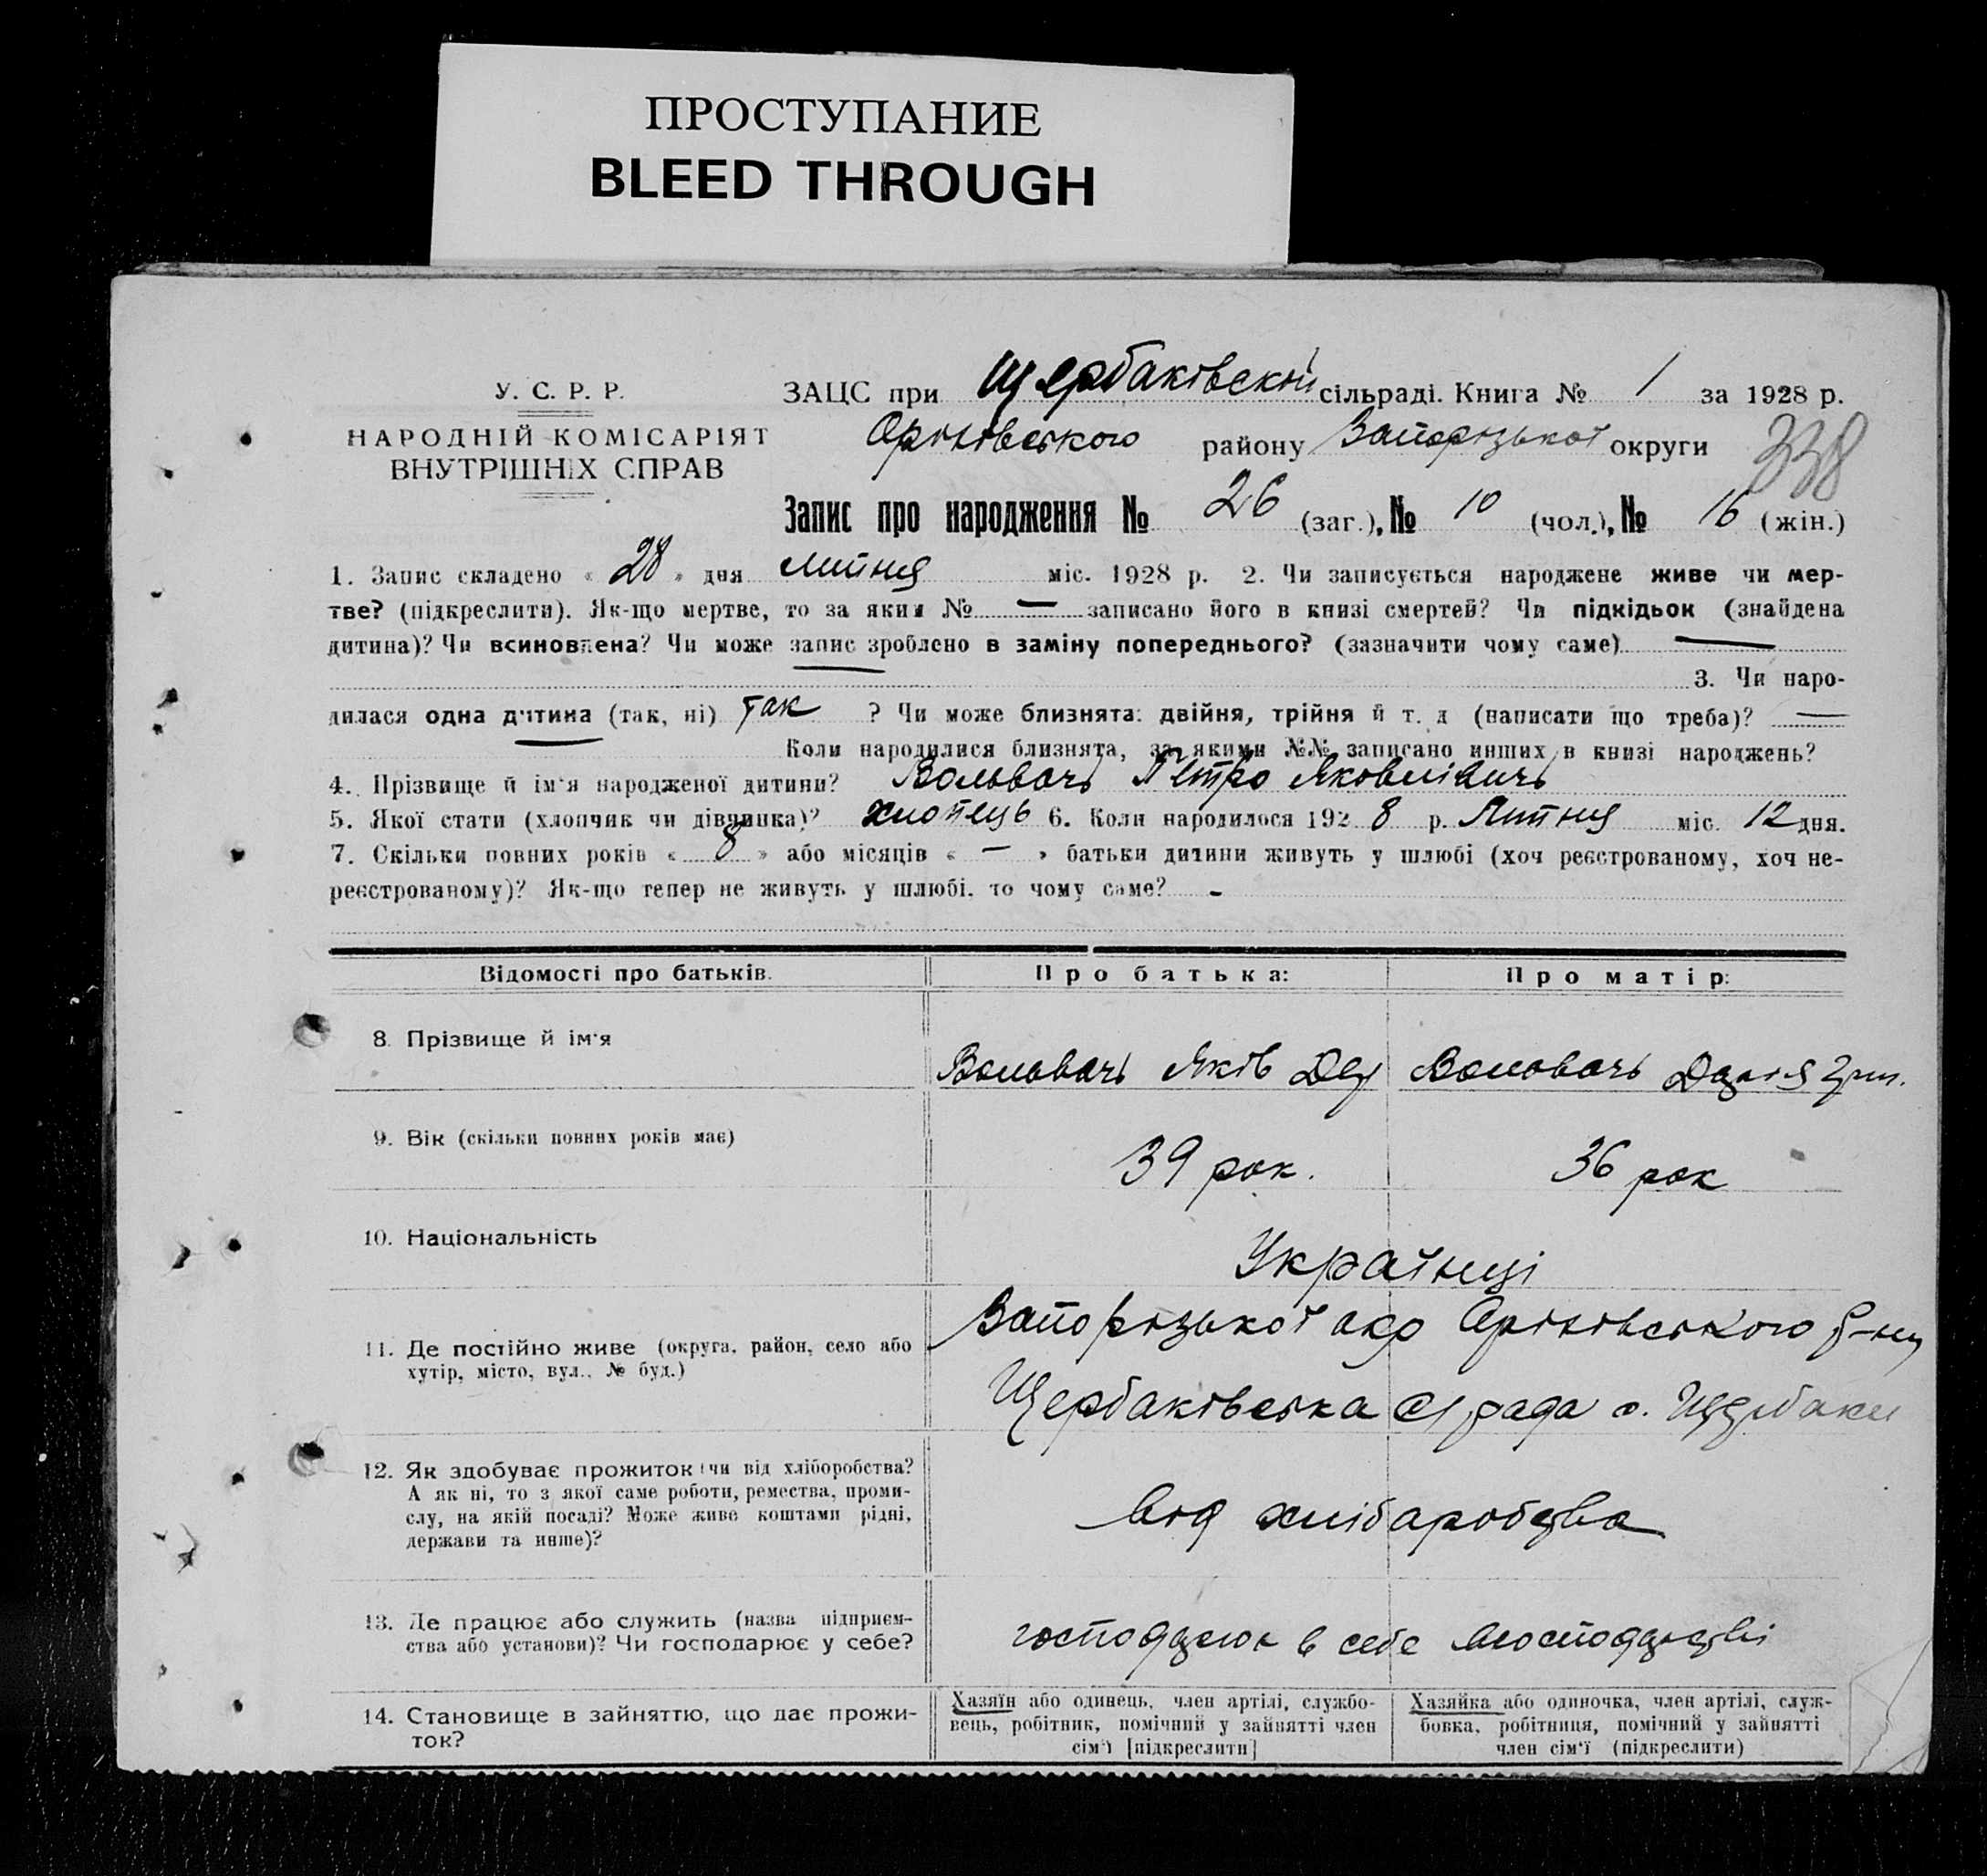 ПРОСТУПАНИЕ
BLEED THROUGH
У. С. Р. Р.
НАРОДНІЙ КОМІСАРІЯТ
ВНУТРІШНІХ СПРАВ
ЗАЦС при Щербаківській сільраді. Книга № 1 за 1928 р.
Оріхівського району Запорізької округи
338
Запис про народження № 26 (заг.), № 10 (чол.), № 16 (жін.)
1. Запис складено « 28 » дня липня міс. 1928 р. 2. Чи записується народжене живе чи мер-
тве? (підкреслити). Як-що мертве, то за яким № — записано його в книзі смертей? Чи підкідьок (знайдена
дитина)? Чи всиновлена? Чи може запис зроблено в заміну попереднього? (зазначити чому саме) —
3. Чи наро-
дилася одна дитина (так, ні) так ? Чи може близнята: двійня, трійня й т. д (написати що треба)? —
Коли народилися близнята, за якими №№ записано инших в книзі народжень?
4. Прізвище й ім'я народженої дитини? Вольвачь Петро Яковлівичь
5. Якої статі (хлопчик чи дівчинка)? хлопець 6. Коли народилося 192 8 р. Липня міс. 12 дня.
7. Скільки повних років « 8 » або місяців « — » батьки дитини живуть у шлюбі (хоч реєстрованому, хоч не-
реєстрованому)? Як-що тепер не живуть у шлюбі, то чому саме? -
Відомості про батьків.
Про батька:
Про матір:
8. Прізвище й ім'я
Вольвачь Яків
Вольвачь Дарія Гри.
9. Вік (скільки повних років має)
39 рок.
36 рок
10. Національність
Українці
11. Де постійно живе (округа, район, село або
хутір, місто, вул., № буд.)
Запорізької окр Оріхівського р-ну
Щербаківська с/рада с. Щербаки
12. Як здобуває прожиток (чи від хліборобства?
А як ні, то з якої саме роботи, ремества, проми-
слу, на якій посаді? Може живе коштами рідні,
держави та инше)?
від хлібаробства
13. Де працює або служить (назва підприєм-
ства або установи)? Чи господарює у себе?
в себе
14. Становище в зайняттю, що дає прожи-
ток?
Хазяїн або одинець, член артілі, службо-
вець, робітник, помічний у зайнятті член
сім'ї [підкреслити]
Хазяйка або одиночка, член артілі, служ-
бовка, робітниця, помічний у зайнятті
член сім'ї (підкреслити)